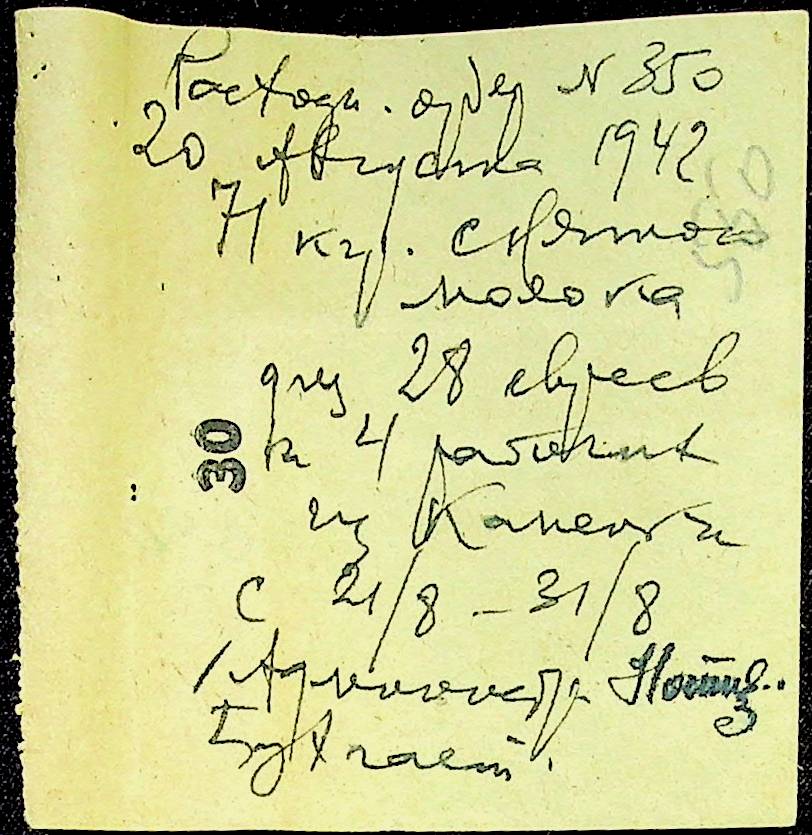 Расходн. ордер N 350
20 Августа 1942
71 кгр. снятого
молока
для 28 евреев
и 4 рабочих
из Каменки
с 21/8 - 31/8
/Администр
Бухгалт.
30